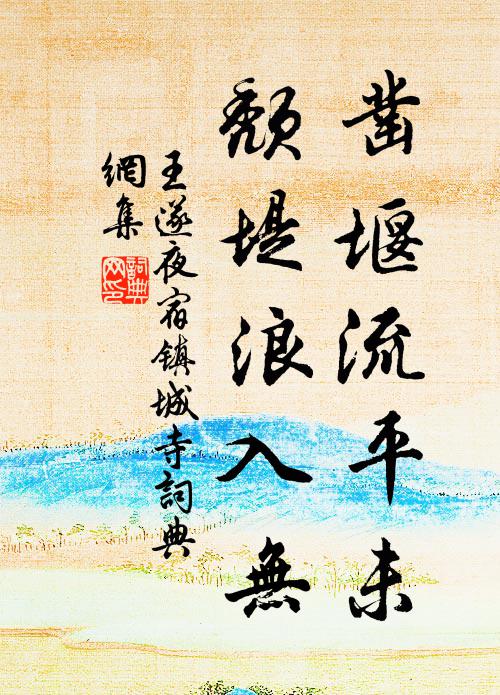 凿堰流平未
颓堤浪入無
王遂夜宿镇城寺詞典
網集
詞典
网印